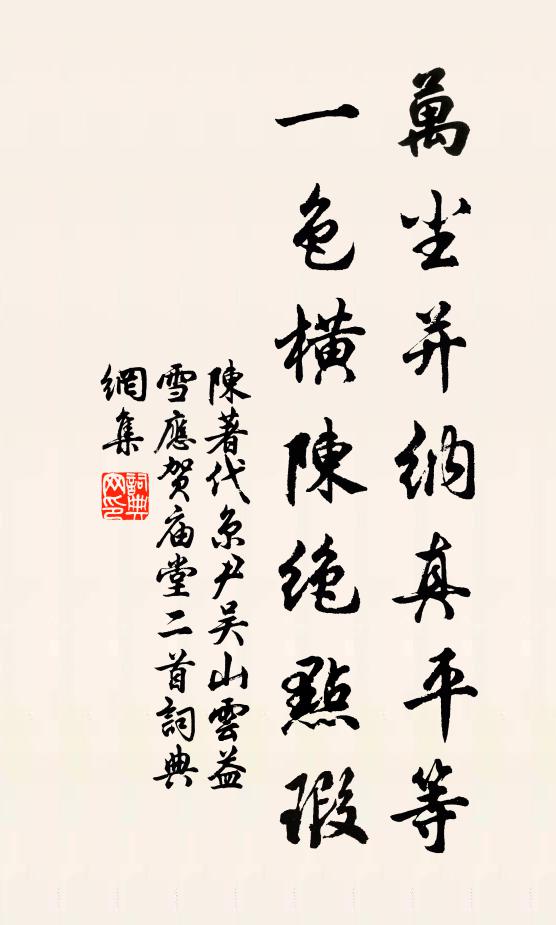 萬尘并纳真平等
一色橫陳绝點瑕
陳著代京尹吴山雲益
雪應贺庙堂二首詞典
網集
詞典
网印